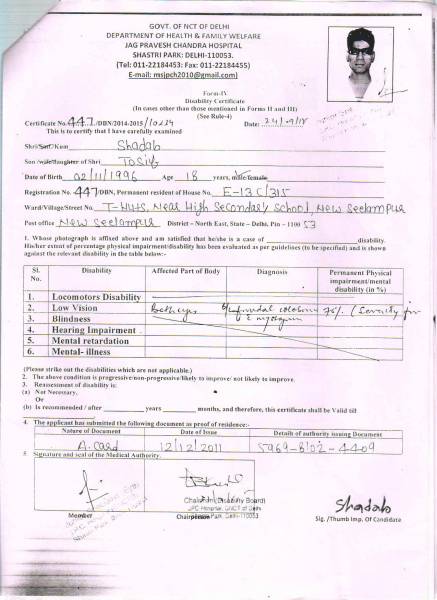 GOVT. OF NCT OF DELHI
DEPARTMENT OF HEALTH & FAMILY WELFARE
JAG PRAVESH CHANDRA HOSPITAL
SHASTRI PARK: DELHI-110053.
(Tel: 011-22184453: Fax: 011-22184455)
E-mail: msjpch2010@gmail.com)
Form-IV
Disability Certificate
(In cases other than those mentioned in Forms II and III)
(See Rule-4)
Certificate No. 447 /DBN/2014-2015/10229 Date:
This is to certify that I have carefully examined
Shri/Smt/Kum Shadab
Son /wife/daughter of Shri Tosif
Date of Birth 02/11/1996 Age 18 years, male/female
Registration No. 447/DBN, Permanent resident of House No. E-13C/315
Ward/Village/Street No. T-Huts, Near High Secondary School, New Seelampur
Post office New Seelampur District – North East, State – Delhi, Pin – 1100 53
1. Whose photograph is affixed above and am satisfied that he/she is a case of disability.
His/her extent of percentage physical impairment/disability has been evaluated as per guidelines (to be specified) and is shown
against the relevant disability in the table below:-
Sl. No. Disability Affected Part of Body Diagnosis Permanent Physical impairment/mental disability (in %)
1. Locomotors Disability
2. Low Vision Both eyes
3. Blindness
4. Hearing Impairment
5. Mental retardation
6. Mental- illness
(Please strike out the disabilities which are not applicable.)
2. The above condition is progressive/non-progressive/likely to improve/ not likely to improve.
3. Reassessment of disability is:
(a) Not Necessary.
Or
(b) Is recommended / after years months, and therefore, this certificate shall be Valid till
4. The applicant has submitted the following document as proof of residence:-
Nature of Document Date of Issue Details of authority issuing Document
A. Card 12/12/2011 5969-8102-4409
5 Signature and seal of the Medical Authority.
Chairman (Disability Board)
JPC Hospital, GNCT of Delhi
Park, Delhi-110053
Shadab
Member Chairperson Sig. /Thumb Imp. Of Candidate